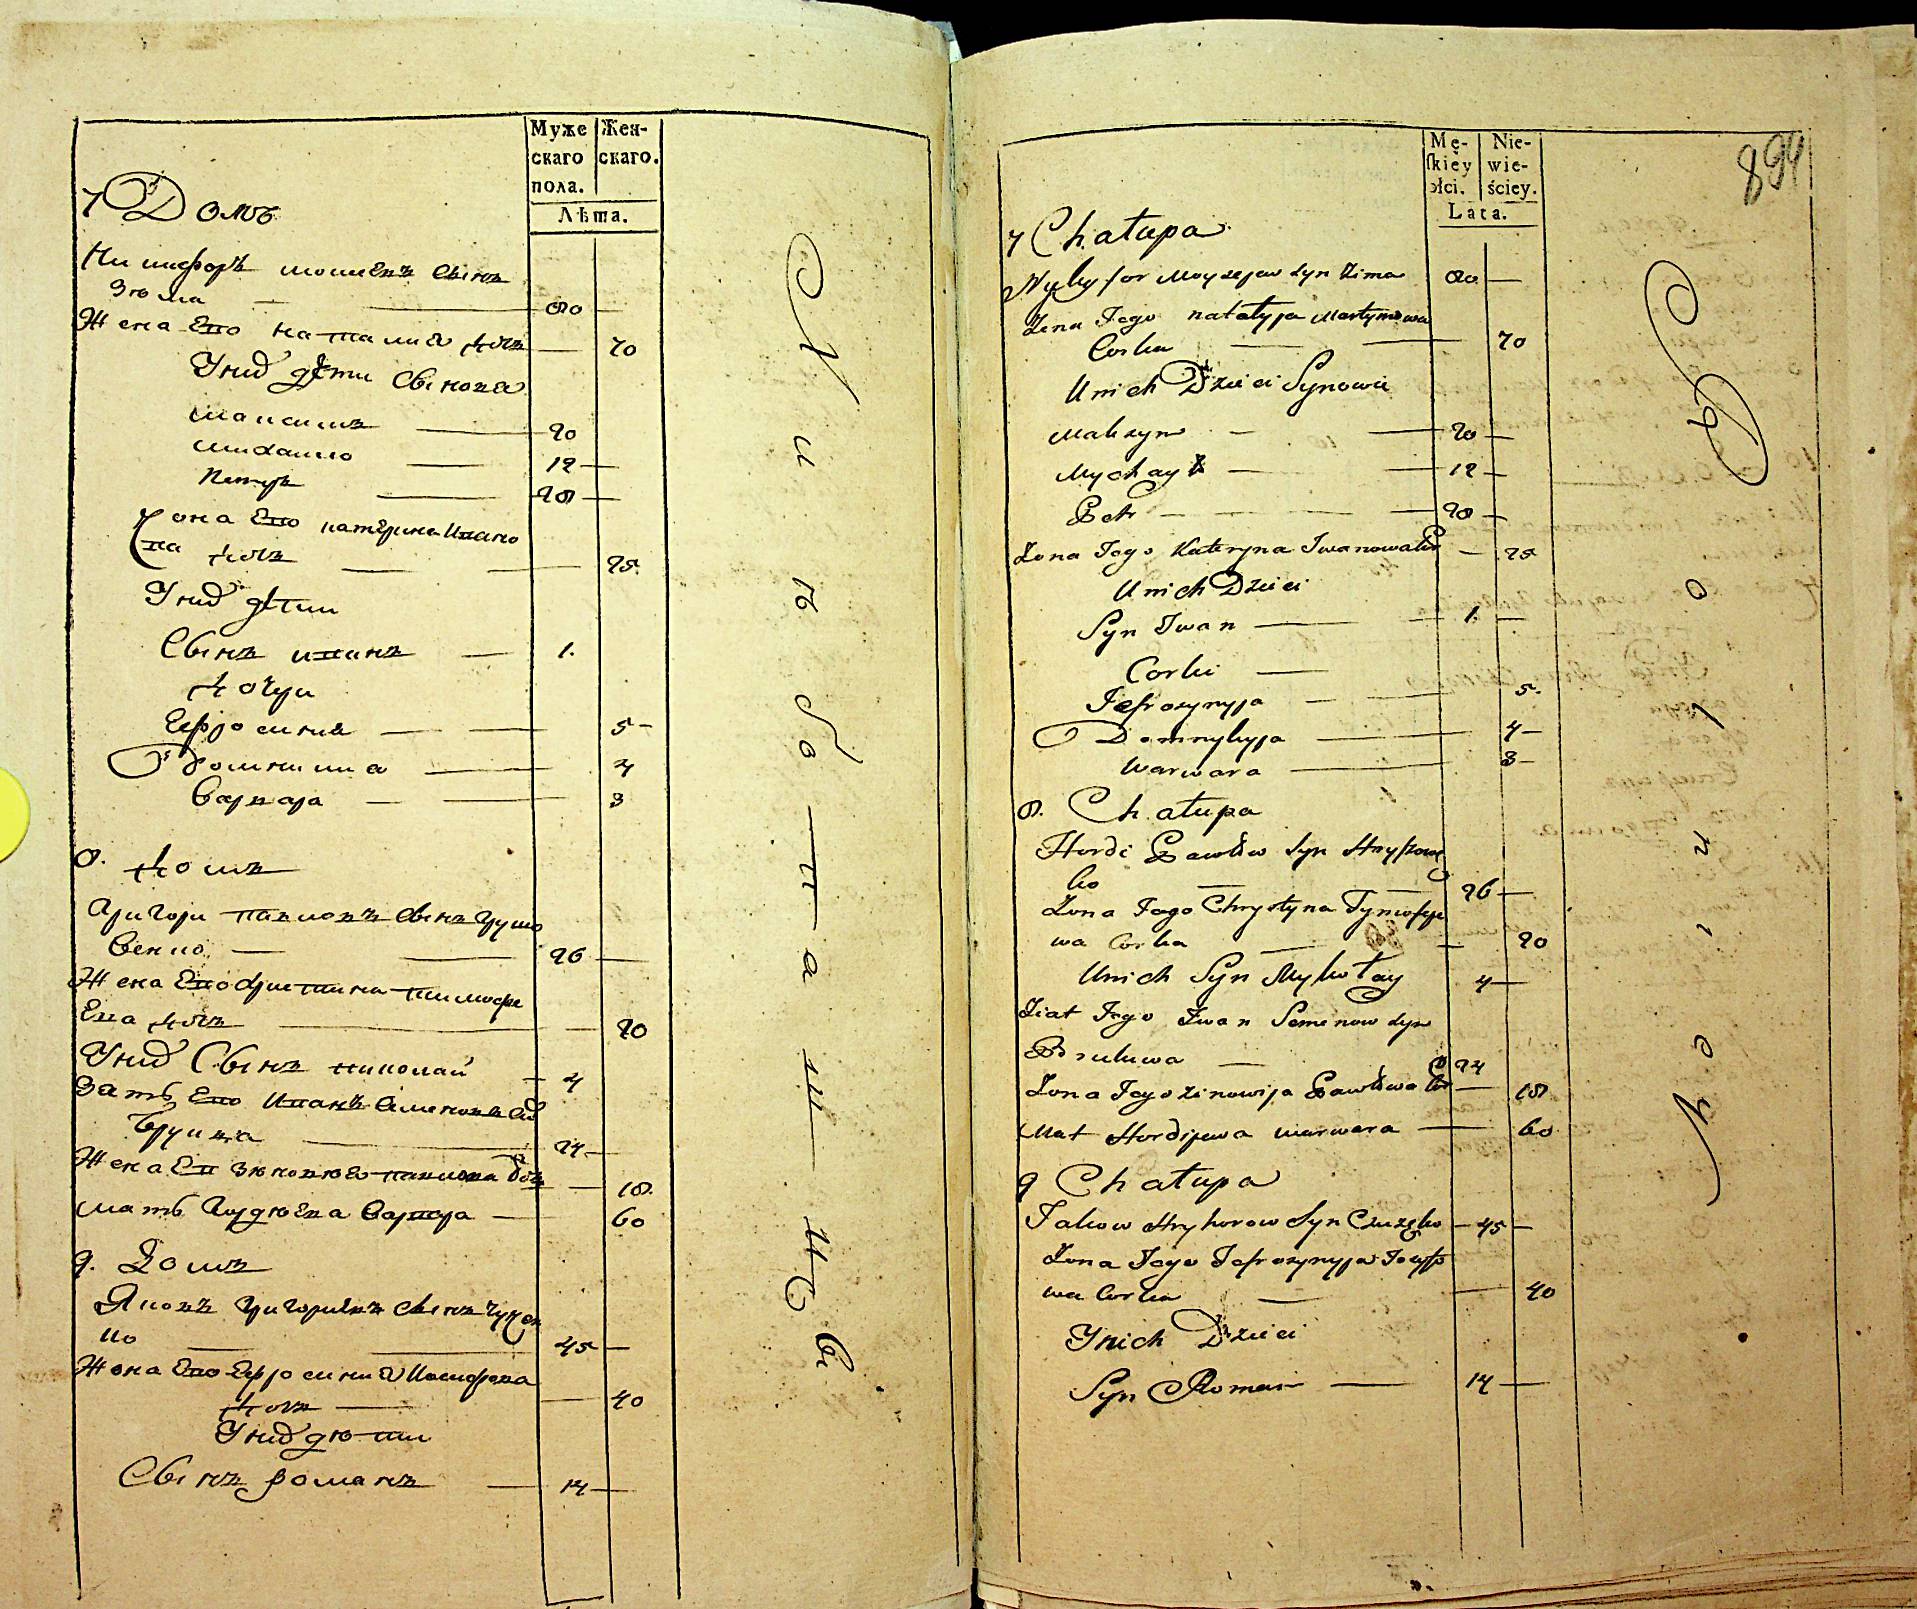 Муже
скаго
пола.
Жен-
скаго.
Лѣта.
7 Домъ
Никифоръ Моисеевъ Сынъ
Зюма — 80 —
Жена Его Наталия дочь — 70
У них дѣти Сынова
Максимъ — 20
Михайло — 12 —
Петръ — 28 —
Жона Его Катерина Ивано
ва дочь — 25
У них дѣти
Сынъ Иванъ — 1.
дочери
Ефросиния — 5 —
Домникия — 4
Варвара — 3
8. Домъ
Григори Павловъ Сынъ Грушо
венко — 26 —
Жена Его Христина Тимофе
Ева дочь — 20
У них Сынъ Николай — 4
Зать Его Иванъ Семеновъ
24 —
Жена Ег Зюновюя Павлова доч — 18.
Мать Гордюева Варвара — 60
9. Домъ
Яковъ Григориевъ Сынъ
ко — 45 —
Жона Его Ефросиния Иосифова
дочь — 40
У них дюти
Сынъ Романъ — 14 —
Mę-
ſkiey
płci.
Nie-
wie-
ściey.
Lata.
894
7 Chałupa
Nykyfor Moyzejew syn Zima 80 —
Żena Jego natałyja Martynowa
Corka — 70
Unich Dzieci Synowie
Maksym — 20 —
Mychaył — 12 —
Petr — 28 —
Żona Jego Kateryna Iwanowa Cor — 25
Unich Dzieci
Syn Iwan — 1. —
Corki —
Jefrozynyja — 5.
Domnykyja — 4 —
Warwara — 3 —
8. Chałupa
Hordi Pawłów Syn Hryszowe
ko — 26 —
Żona Jego Chrystyna Tymofeje
wa Corka — 20
Unich Syn Mykołay 4 —
Ziat Jego Iwan Semenow syn
24
Żona Jego Zinowija Pawłowa Cor — 18
Mat Hordijewa warwara — 60
9 Chałupa
Jakow Hryhorow Syn — 45 —
Żona Jego Jefrozynyja Josyfo
wa Corka — 40
Ynich Dzieci
Syn Roman — 14 —